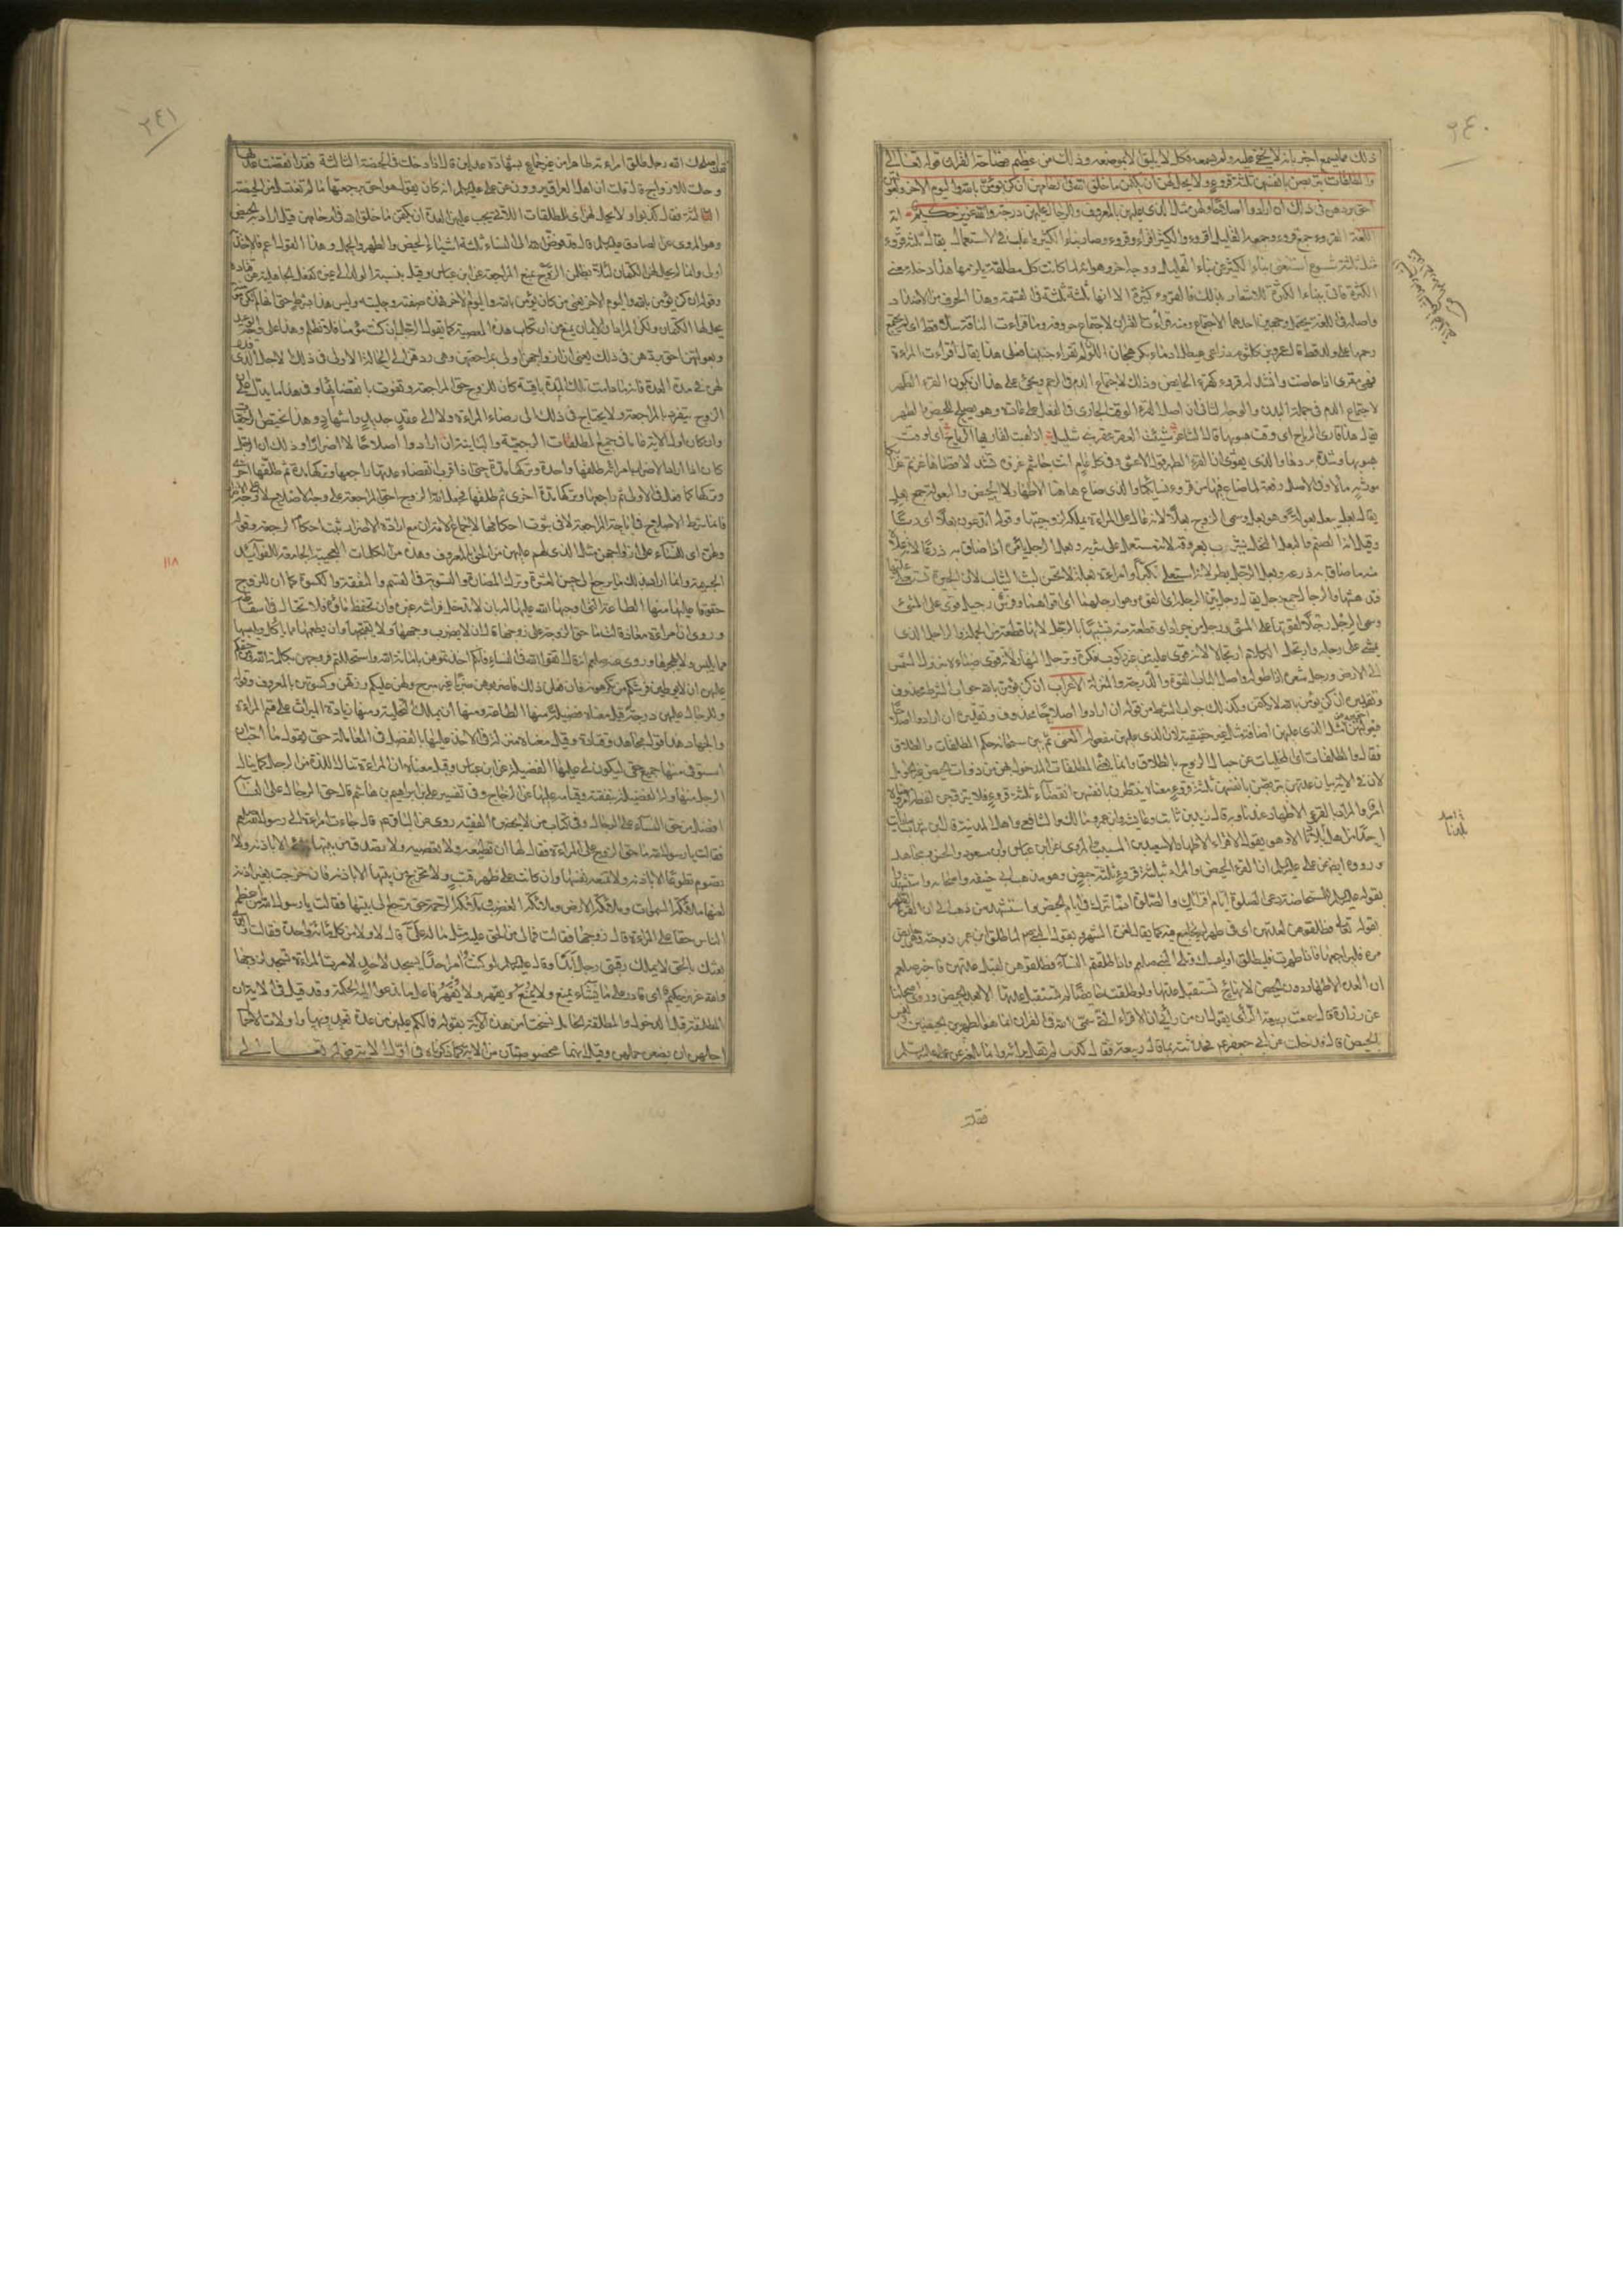 ٢٤٠
ذلك مما يسمع اخبر بانه لا يخفى عليه ولم يسمعه فكل لا يليق الا بموضعه وذلك من عظيم فصاحة القران قوله تعالى
والمطلقات يتربصن بانفسهن ثلثة قروء ولا يحل لهن ان يكتمن ما خلق الله في ارحامهن ان كن يؤمن بالله واليوم الاخر وبعولتهن
احق بردهن في ذلك ان ارادوا اصلاحا ولهن مثل الذي عليهن بالمعروف وللرجال عليهن درجة والله عزيز حكيم اية
اللغة القروء جمع قرء وجمعه القليل اقرء والكثير اقراء وقروء وصار بناء الكثير اغلب في الاستعمال يقال ثلثة قروء
مثل ثلثة شسوع استغنى ببناء الكثير عن بناء القليل ووجه اخر وهو انه لما كانت كل مطلقة يلزمها هذا دخله معنى
الكثرة فاتى ببناء الكثرة للاشعار بذلك فالقروء كثيرة الا انها ثلثة ثلثة في القسمة وهذا الحرف من الاضداد
واصله في اللغة يحتمل وجهين احدهما الاجتماع ومنه قرأت القران لاجتماع حروفه وما قرأت الناقة سلا قط اي لم يجتمع
رحمها على ولد قط قال عمرو بن كلثوم ذراعي عيطل ادماء بكر هجان اللون لم تقرأ جنينا فعلى هذا يقال اقرأت المرءة
فهي مقرئ اذا حاضت وانشد له قروء كقروء الحايض وذلك لاجتماع الدم في الرحم ويجئ على هذا ان يكون القرء الطهر
لاجتماع الدم في جملة البدن والوجه الثاني ان اصل القرء الوقت الجاري في الفعل على عادة وهو يصلح للحيض والطهر
يقال هذا قارئ الرياح اي وقت هبوبها قال الشاعر شنئت العقر عقر بني شليل اذا هبت لقاريها الرياح اي لوقت
هبوبها وشدة بردها والذي يقوي ان القرء الطهر قول الاعشى وفي كل عام انت جاشم غزوة تشد لاقصاها عزيم عزائكا
مورثة مالا وفي الاصل رفعة لما ضاع فيها من قروء نسائكا والذي ضاع هاهنا الاطهار لا الحيض والبعولة جمع بعل
يقال بعل يبعل بعولة وهو بعل وسمي الزوج بعلا لانه عال على المرءة بملكه لزوجيتها وقوله اتدعون بعلا اي ربا
وقيل انه الصنم والبعل النخل يشرب بعروقه لانه مستعل على شربه وبعل الرجل بامره اذا ضاق به ذرعا لانه علاه
منه ما ضاق به ذرعه وبعل الرجل بطر لانه استعلى تكبرا وامراءة بعلة لا تحسن لبس الثياب لان الحيرة تستعلي عليها
يمشي على رجله وارتجل الكلام ارتجالا لانه قوي عليه من غير ركوب فكرة وترجل النهار لانه قوي ضياءه بنزول الشمس
الى الارض ورجل شعره اذا طوله واصل الباب القوة والدرجة والمنزلة الاعراب ان كن يؤمن بالله جواب الشرط محذوف
وتقديره ان كن يؤمن بالله لا يكتمن وكذلك جواب الشرط من قوله ان ارادوا اصلاحا محذوف وتقديره ان ارادوا اصلاحا
فقال والمطلقات اي المخليات عن حبال الزوج بالطلاق وانما يعني المطلقات المدخول بهن من ذوات الحيض غير الحوامل
لان في الاية بيان عدتهن يتربصن بانفسهن ثلثة قروء معناه ينتظرن بانفسهن انقضاء ثلثة قروء فلا يتزوجن لفظه خبر ومعناه
امر والمراد بالقروء الاطهار عندنا وبه قال زيد بن ثابت وعايشة وابن عمر ومالك والشافعي واهل المدينة قال ابن شهاب ما رايت
احدا من اهل بلدنا الا وهو يقول الاقراء الاطهار الا سعيد بن المسيب والمروي عن ابن عباس وابن مسعود والحسن ومجاهد
ورووه ايضا عن علي عليه السلام ان القرء الحيض والمراد بثلثة قروء ثلثة حيض وهو مذهب ابي حنيفة واصحابه واستشهدوا
بقوله عليه السلام للمستحاضة دعي الصلوة ايام اقرائك والصلوة انما تترك في ايام الحيض واستشهد من ذهب الى ان القرء الطهر
بقوله تعالى فطلقوهن لعدتهن اي في طهر لم يجامع فيه كما يقال لغرة الشهر وبقول النبي صلعم لما طلق ابن عمر زوجته وهي حايض
مره فليراجعها فاذا طهرت فليطلق او ليمسك وتلا النبي صلعم واذا طلقتم النساء فطلقوهن لقبل عدتهن فاخبر صلعم
ان العدة الاطهار دون الحيض لانها حينئذ تستقبل عدتها ولو طلقت حايضا لم تستقبل عدتها الا بعد الحيض وروى اصحابنا
عن زرارة قال سمعت ربيعة الراي يقول ان من رايي ان الاقراء التي سمى الله في القران انما هو الطهر بين الحيضتين وليس
بالحيض قال فدخلت على ابي جعفر عم فحدثته بما قال ربيعة فقال كذب لم يقل برايه وانما بلغه عن علي عليه السلام
بلدنا
فقلت
٢٤١
فقلت اصلحك الله رجل طلق امراءته طاهرا من غير جماع بشهادة عدلين قال اذا دخلت في الحيضة الثالثة فقد انقضت عدتها
وحلت للازواج قال قلت ان اهل العراق يروون عن علي عليه السلام انه كان يقول هو احق برجعتها ما لم تغتسل من الحيضة
الثالثة فقال كذبوا ولا يحل لهن اي للمطلقات اللاتي يجب عليهن العدة ان يكتمن ما خلق الله في ارحامهن قيل اراد به الحيض
وهو المروي عن الصادق عليه السلام قال قد فوض الله الى النساء ثلثة اشياء الحيض والطهر والحمل وهذا القول اعم فالاخذ به
اولى وانما لم يحل لهن الكتمان لئلا يظلمن الزوج بمنع المراجعة عن ابن عباس وقيل بنسبة الولد الى غيره كفعل الجاهلية عن قتادة
وقوله ان كن يؤمن بالله واليوم الاخر يعني من كان يؤمن بالله واليوم الاخر فهذه صفته وحليته وليس هذا بشرط حتى انها ان لم تكن مؤمنة
يحل لها الكتمان ولكن المراد ان الايمان يمنع من ارتكاب هذه المعصية كما يقول الرجل ان كنت مؤمنا فلا تظلم وهذا على وجه الوعيد
وبعولتهن احق بردهن في ذلك يعني ان ازواجهن اولى بمراجعتهن وهي ردهن الى الحالة الاولى في ذلك الاجل الذي قدر
لهن في مدة العدة فانه ما دامت تلك المدة باقية كان للزوج حق المراجعة ويفوت بانقضائها وفي هذا ما يدل على ان
الزوج ينفرد بالمراجعة ولا يحتاج في ذلك الى رضاء المراءة ولا الى عقد جديد واشهاد وهذا يختص الرجعيات
وان كان اول الاية عاما في جميع المطلقات الرجعية والباينة ان ارادوا اصلاحا لا اضرارا وذلك ان الرجل
كان اذا اراد الاضرار بامرءته طلقها واحدة وتركها حتى اذا قرب انقضاء عدتها راجعها وتركها مدة ثم طلقها اخرى
وتركها كما فعل في الاولى ثم راجعها وتركها مدة اخرى ثم طلقها فجعل الله الزوج احق بالمراجعة على وجه الاصلاح لا على وجه الاضرار
فانما شرط الاصلاح في اباحة الرجعة لا في ثبوت احكامها لاجماع الامة ان مع ارادة الاضرار يثبت احكام الرجعة وقوله
ولهن اي للنساء على ازواجهن مثل الذي لهم عليهن من الحق بالمعروف وهذه من الكلمات العجيبة الجامعة للفوايد
الجمة وانما اراد بذلك ما يرجع الى حسن العشرة وترك المضارة والتسوية في القسم والنفقة والكسوة كما ان للزوج
حقوقا عليها منها الطاعة التي اوجبها الله عليها له وان لا تدخل فراشه غيره وان تحفظ ماءه فلا تحتال في اسقاطه
وروي ان امراءة معاذ قالت ما حق الزوجة على زوجها قال ان لا يضرب وجهها ولا يقبحها وان يطعمها مما ياكل ويلبسها
مما يلبس ولا يهجرها وروي عنه صلعم انه قال اتقوا الله في النساء فانكم اخذتموهن بامانة الله واستحللتم فروجهن بكلمة الله ومن حقكم
عليهن ان لا يوطئن فرشكم من تكرهونه فان فعلن ذلك فاضربوهن ضربا غير مبرح ولهن عليكم رزقهن وكسوتهن بالمعروف وقوله
وللرجال عليهن درجة قيل معناه فضيلة منها الطاعة ومنها ان يملك التخلية ومنها زيادة الميراث على قسم المراءة
والجهاد هذا قول مجاهد وقتادة وقيل معناه منزلة في الاخذ عليها بالفضل في المعاملة حتى يقول ما احب ان
استوفي منها جميع حقي ليكون لي عليها الفضيلة عن ابن عباس وقيل معناه ان المراءة تنال اللذة من الرجل كما ينال
الرجل منها وله الفضيلة بنفقته وقيامه عليها عن الزجاج وفي تفسير علي بن ابراهيم بن هاشم قال حق الرجال على النساء
افضل من حق النساء على الرجال وفي كتاب من لا يحضره الفقيه روي عن الباقر عم قال جاءت امراءة الى رسول الله صلعم
فقالت يا رسول الله ما حق الزوج على المراءة فقال لها ان تطيعه ولا تعصيه ولا تصدق من بيتها الا باذنه ولا
تصوم تطوعا الا باذنه ولا تمنعه نفسها وان كانت على ظهر قتب ولا تخرج من بيتها الا باذنه فان خرجت بغير اذنه
لعنتها ملائكة السموات وملائكة الارض وملائكة الغضب وملائكة الرحمة حتى ترجع الى بيتها فقالت يا رسول الله من اعظم
الناس حقا على المراءة قال زوجها فقالت فما لي من الحق عليه مثل ما له علي قال لا ولا من كل مائة واحدة فقالت والذي
بعثك بالحق لا يملك رقبتي رجل ابدا وقال عليه السلام لو كنت امر احدا يسجد لاحد لامرت المراءة تسجد لزوجها
والله عزيز حكيم اي قادر على ما يشاء يمنع ولا يمنع ويقهر ولا يقهر فاعل ما تدعو اليه الحكمة وقد قيل في الاية ان
المطلقة قبل الدخول والمطلقة الحامل نسختا من هذه الاية بقوله فما لكم عليهن من عدة تعتدونها واولات الاحمال
اجلهن ان يضعن حملهن وقيل انهما مخصوصتان من الاية كما ذكرناه في اول الاية قوله تعالى
١١٨